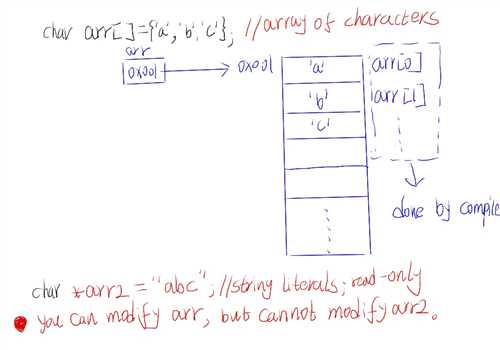 char arr[]={'a','b','c'}; //array of characters
arr
0x001 0x001 'a' arr[0]
'b' arr[1]
'c'
done by compile
char *arr2 = "abc"; //string literals; read-only
you can modify arr, but cannot modify arr2.